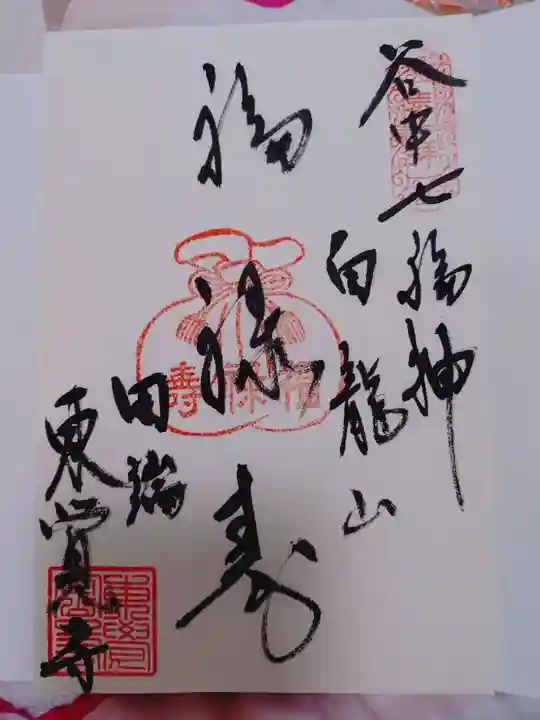 谷中七福神
白龍山
福禄寿
福禄壽
田端
東覚寺